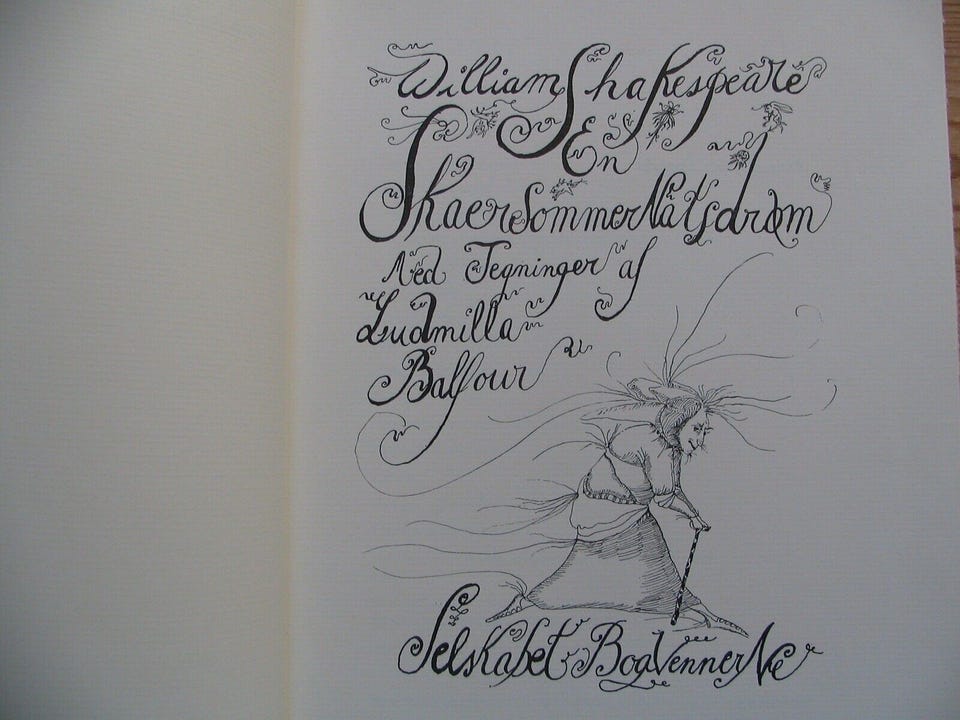 William Shakespeare
En
SkaersommerNatsdrøm
Med Tegninger af
Ludmilla
Balfour
Selskabet BogVennerNe